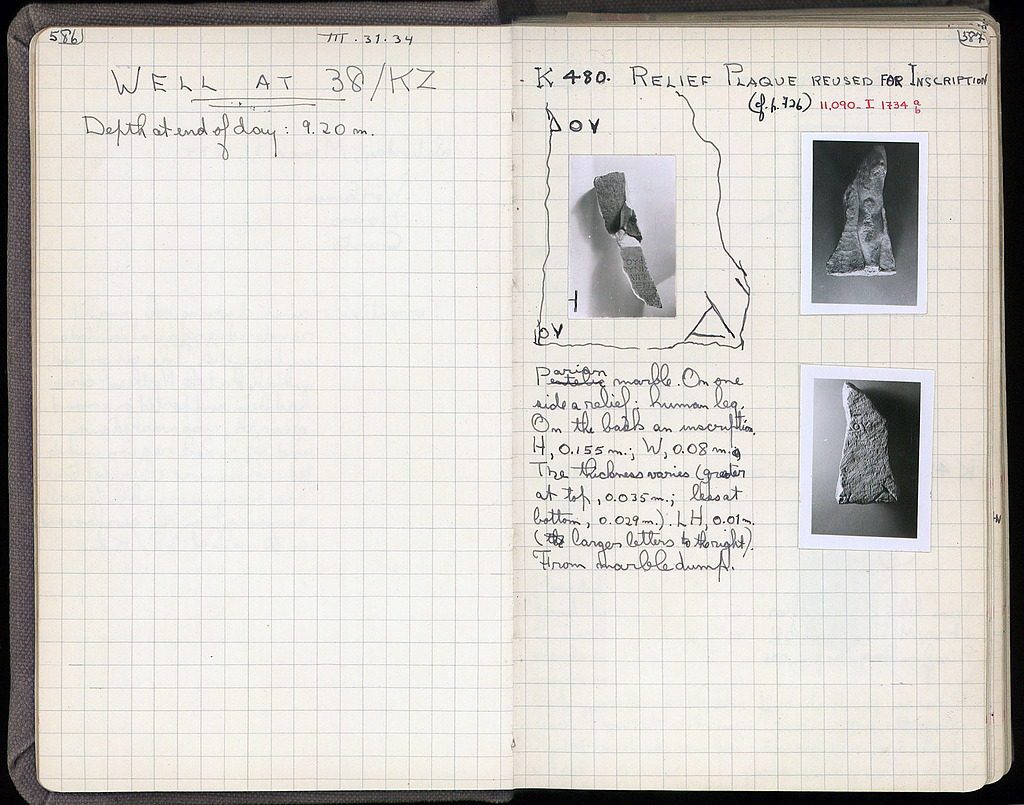 586
III . 31 . 34
WELL AT 38/KZ
Depth at end of day : 9.20 m.
587
K 480. RELIEF PLAQUE REUSED FOR INSCRIPTION
(cf. p. 726) 11,090 - I 1734 a b
Δ O V
H
O V
Pentelic Parian marble. On one
side a relief: human leg.
On the back an inscription.
H, 0.155 m.; W, 0.08 m.
The thickness varies (greater
at top, 0.035 m.; less at
bottom, 0.029 m.). LH, 0.01 m.
(the larges letters to the right).
From marble dump.